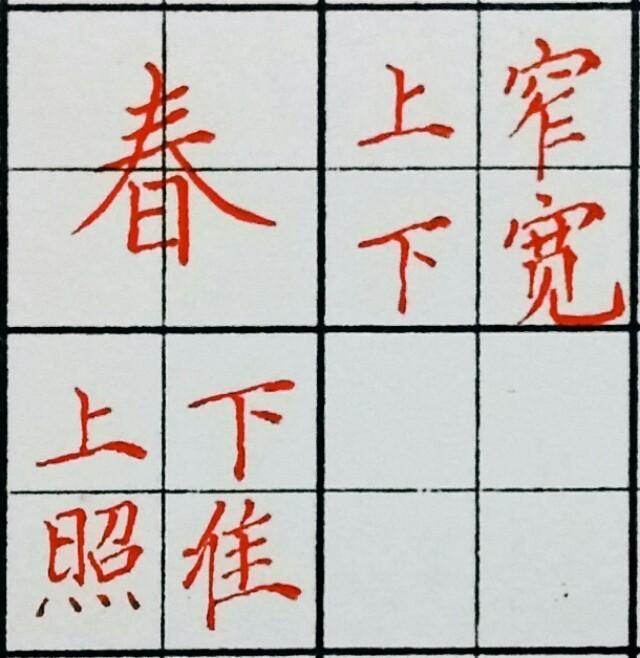 春
上窄
下宽
上下
照